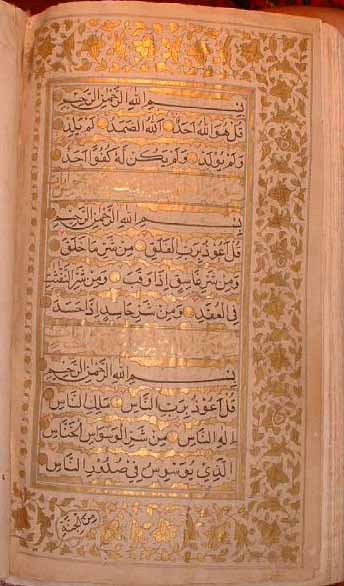 بِسْمِ اللهِ الرَّحْمٰنِ الرَّحِيْمِ
قُلْ هُوَ اللهُ أَحَدٌ اَللهُ الصَّمَدُ لَمْ يَلِدْ
وَلَمْ يُوْلَدْ وَلَمْ يَكُنْ لَهُ كُفُوًا أَحَدٌ
بِسْمِ اللهِ الرَّحْمٰنِ الرَّحِيْمِ
قُلْ أَعُوْذُ بِرَبِّ الْفَلَقِ مِنْ شَرِّ مَا خَلَقَ
وَمِنْ شَرِّ غَاسِقٍ إِذَا وَقَبَ وَمِنْ شَرِّ النَّفّٰثٰتِ
فِي الْعُقَدِ وَمِنْ شَرِّ حَاسِدٍ إِذَا حَسَدَ
بِسْمِ اللهِ الرَّحْمٰنِ الرَّحِيْمِ
قُلْ أَعُوْذُ بِرَبِّ النَّاسِ مَلِكِ النَّاسِ
إِلٰهِ النَّاسِ مِنْ شَرِّ الْوَسْوَاسِ الْخَنَّاسِ
الَّذِي يُوَسْوِسُ فِي صُدُوْرِ النَّاسِ
مِنَ الْجِنَّةِ